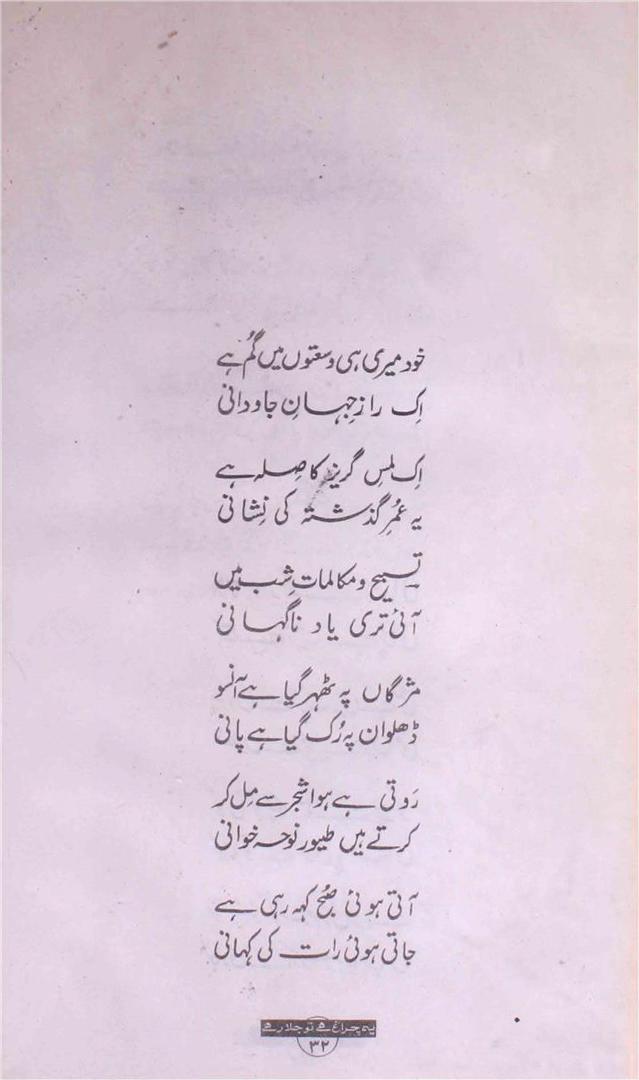 خود میری ہی وسعتوں میں گُم ہے
اِک رازِ جہانِ جاودانی
اِک لمسِ گریز کا صِلہ ہے
یہ عُمرِ گذشتہ کی نِشانی
تسبیح و مکالماتِ شب میں
آئی تری یاد ناگہانی
مژگاں پہ ٹھہر گیا ہے آنسو
ڈھلوان پہ رُک گیا ہے پانی
روتی ہے ہوا شجر سے مِل کر
کرتے ہیں طیور نوحہ خوانی
آتی ہوئی صُبح کہہ رہی ہے
جاتی ہوئی رات کی کہانی
یہ چراغ ہے تو جلا رہے
۳۲